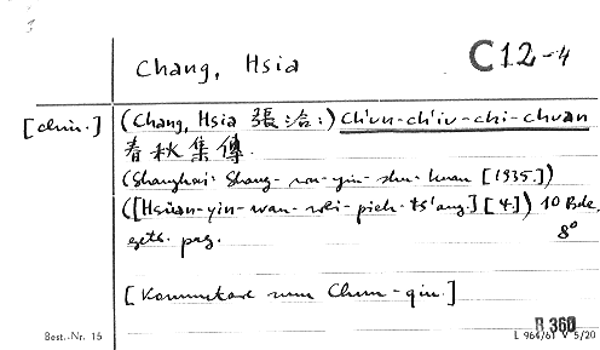 Chang, Hsia
C12-4
[chin.]
(Chang, Hsia 張洽:) Ch'un-ch'iu-chi-chuan
春秋集傳.
(Shanghai: Shang-wu-yin-shu-kuan [1935.])
([Hsüan-yin-wan-wei-pieh-ts'ang.] [4.]) 10 Bde,
getr. pag. 8°
[Kommentare zum Chun-qiu.]
Best.-Nr. 15
B 360
L 964/61 V 5/20